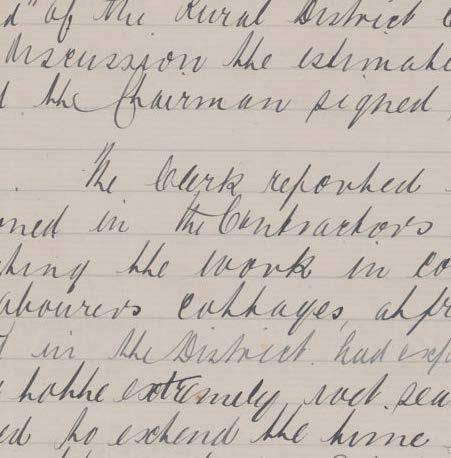 d" of the Rural District
Discussion the estimate
the Chairman signed
The Clerk reported
oned in the Contractors
ting the work in co
abourers cottages, at
in the District. had exp
to the extremely wet. sea
ed to extend the time